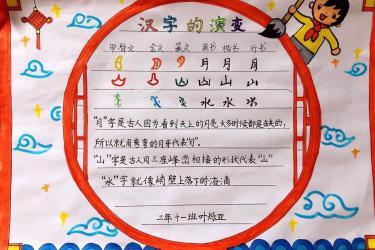 汉字的演变
甲骨文 金文 篆文 隶书 楷书 行书
月 月 月
山 山 山
水 水 水
"月"字是古人因为看到天上的月亮大多时候都是缺的,
所以就用弯弯的月牙代表"月"。
"山"字是古人用三座峰峦相接的形状代表"山"
"水"字就像峭壁上落下的滴
二年十一班叶烁亚